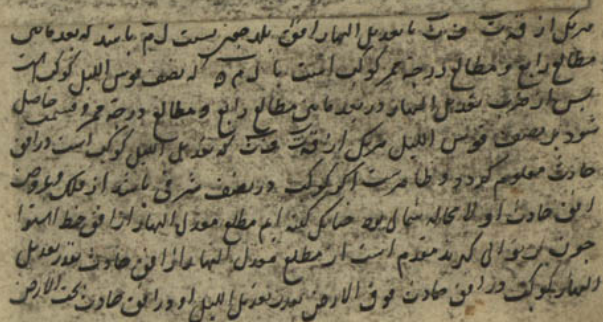 هر یک از ق ت ف ت با تعدیل النهار افق بلد چون نسبت ل م باشد که بعد مابین
مطالع رابع و مطالع درجه ممر کوکب است با ل م ه که نصف قوس اللیل کوکب است
پس از ضرب تعدیل النهار در بعد مابین مطالع رابع و مطالع درجه ممر و قسمت حاصل
شود بر نصف قوس اللیل هر یک از ق ت ف ت که تعدیل اللیل کوکب است در افق
حادث معلوم گردد و ظاهر است اگر کوکب در نصف شرقی باشد از فلک
افق حادث او لا محاله شمالی بود مطلع معدل النهار از افق خط استوا
چون بتوالی گیرند مقدم است از مطلع معدل النهار از افق حادث بقدر تعدیل
النهار کوکب در افق حادث فوق الارض بقدر تعدیل اللیل او در افق حادث تحت الارض